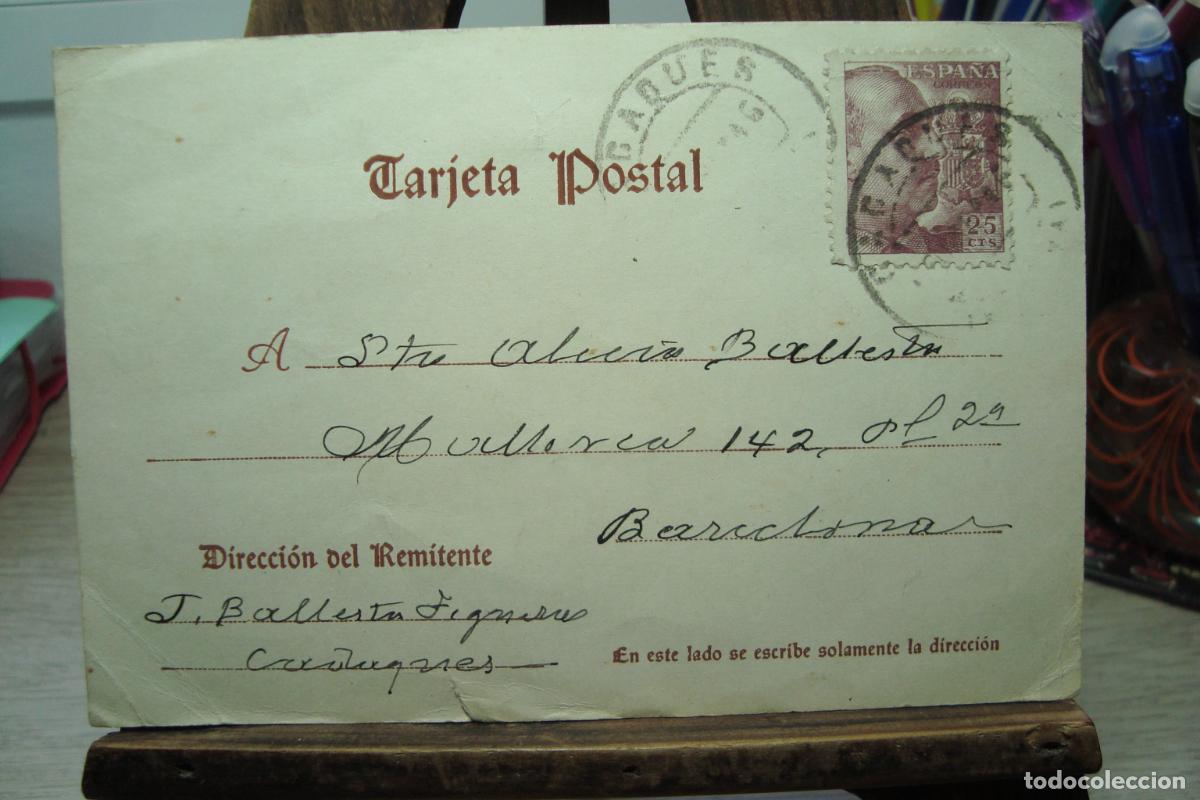 CADAQUES
ESPAÑA
CORREOS
25
CTS
CADAQUES
Tarjeta Postal
A Sta Ballesta
Mallorca 142, pl 2ª
Barcelona
Dirección del Remitente
J. Ballesta Figueras
Cadaques
En este lado se escribe solamente la dirección
todocoleccion